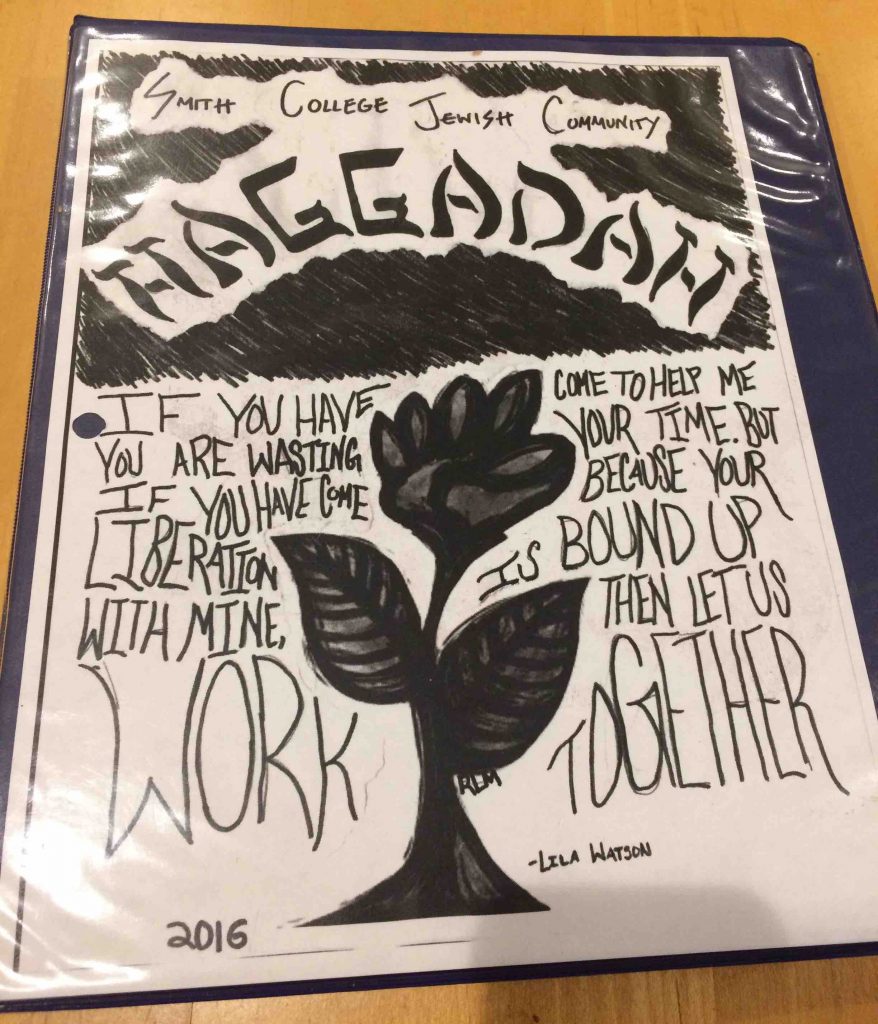 Smith College Jewish Community
HAGGADAH
IF YOU HAVE COME TO HELP ME
YOU ARE WASTING YOUR TIME. BUT
IF YOU HAVE COME BECAUSE YOUR
LIBERATION IS BOUND UP
WITH MINE, THEN LET US
WORK TOGETHER
REM
-LILA WATSON
2016